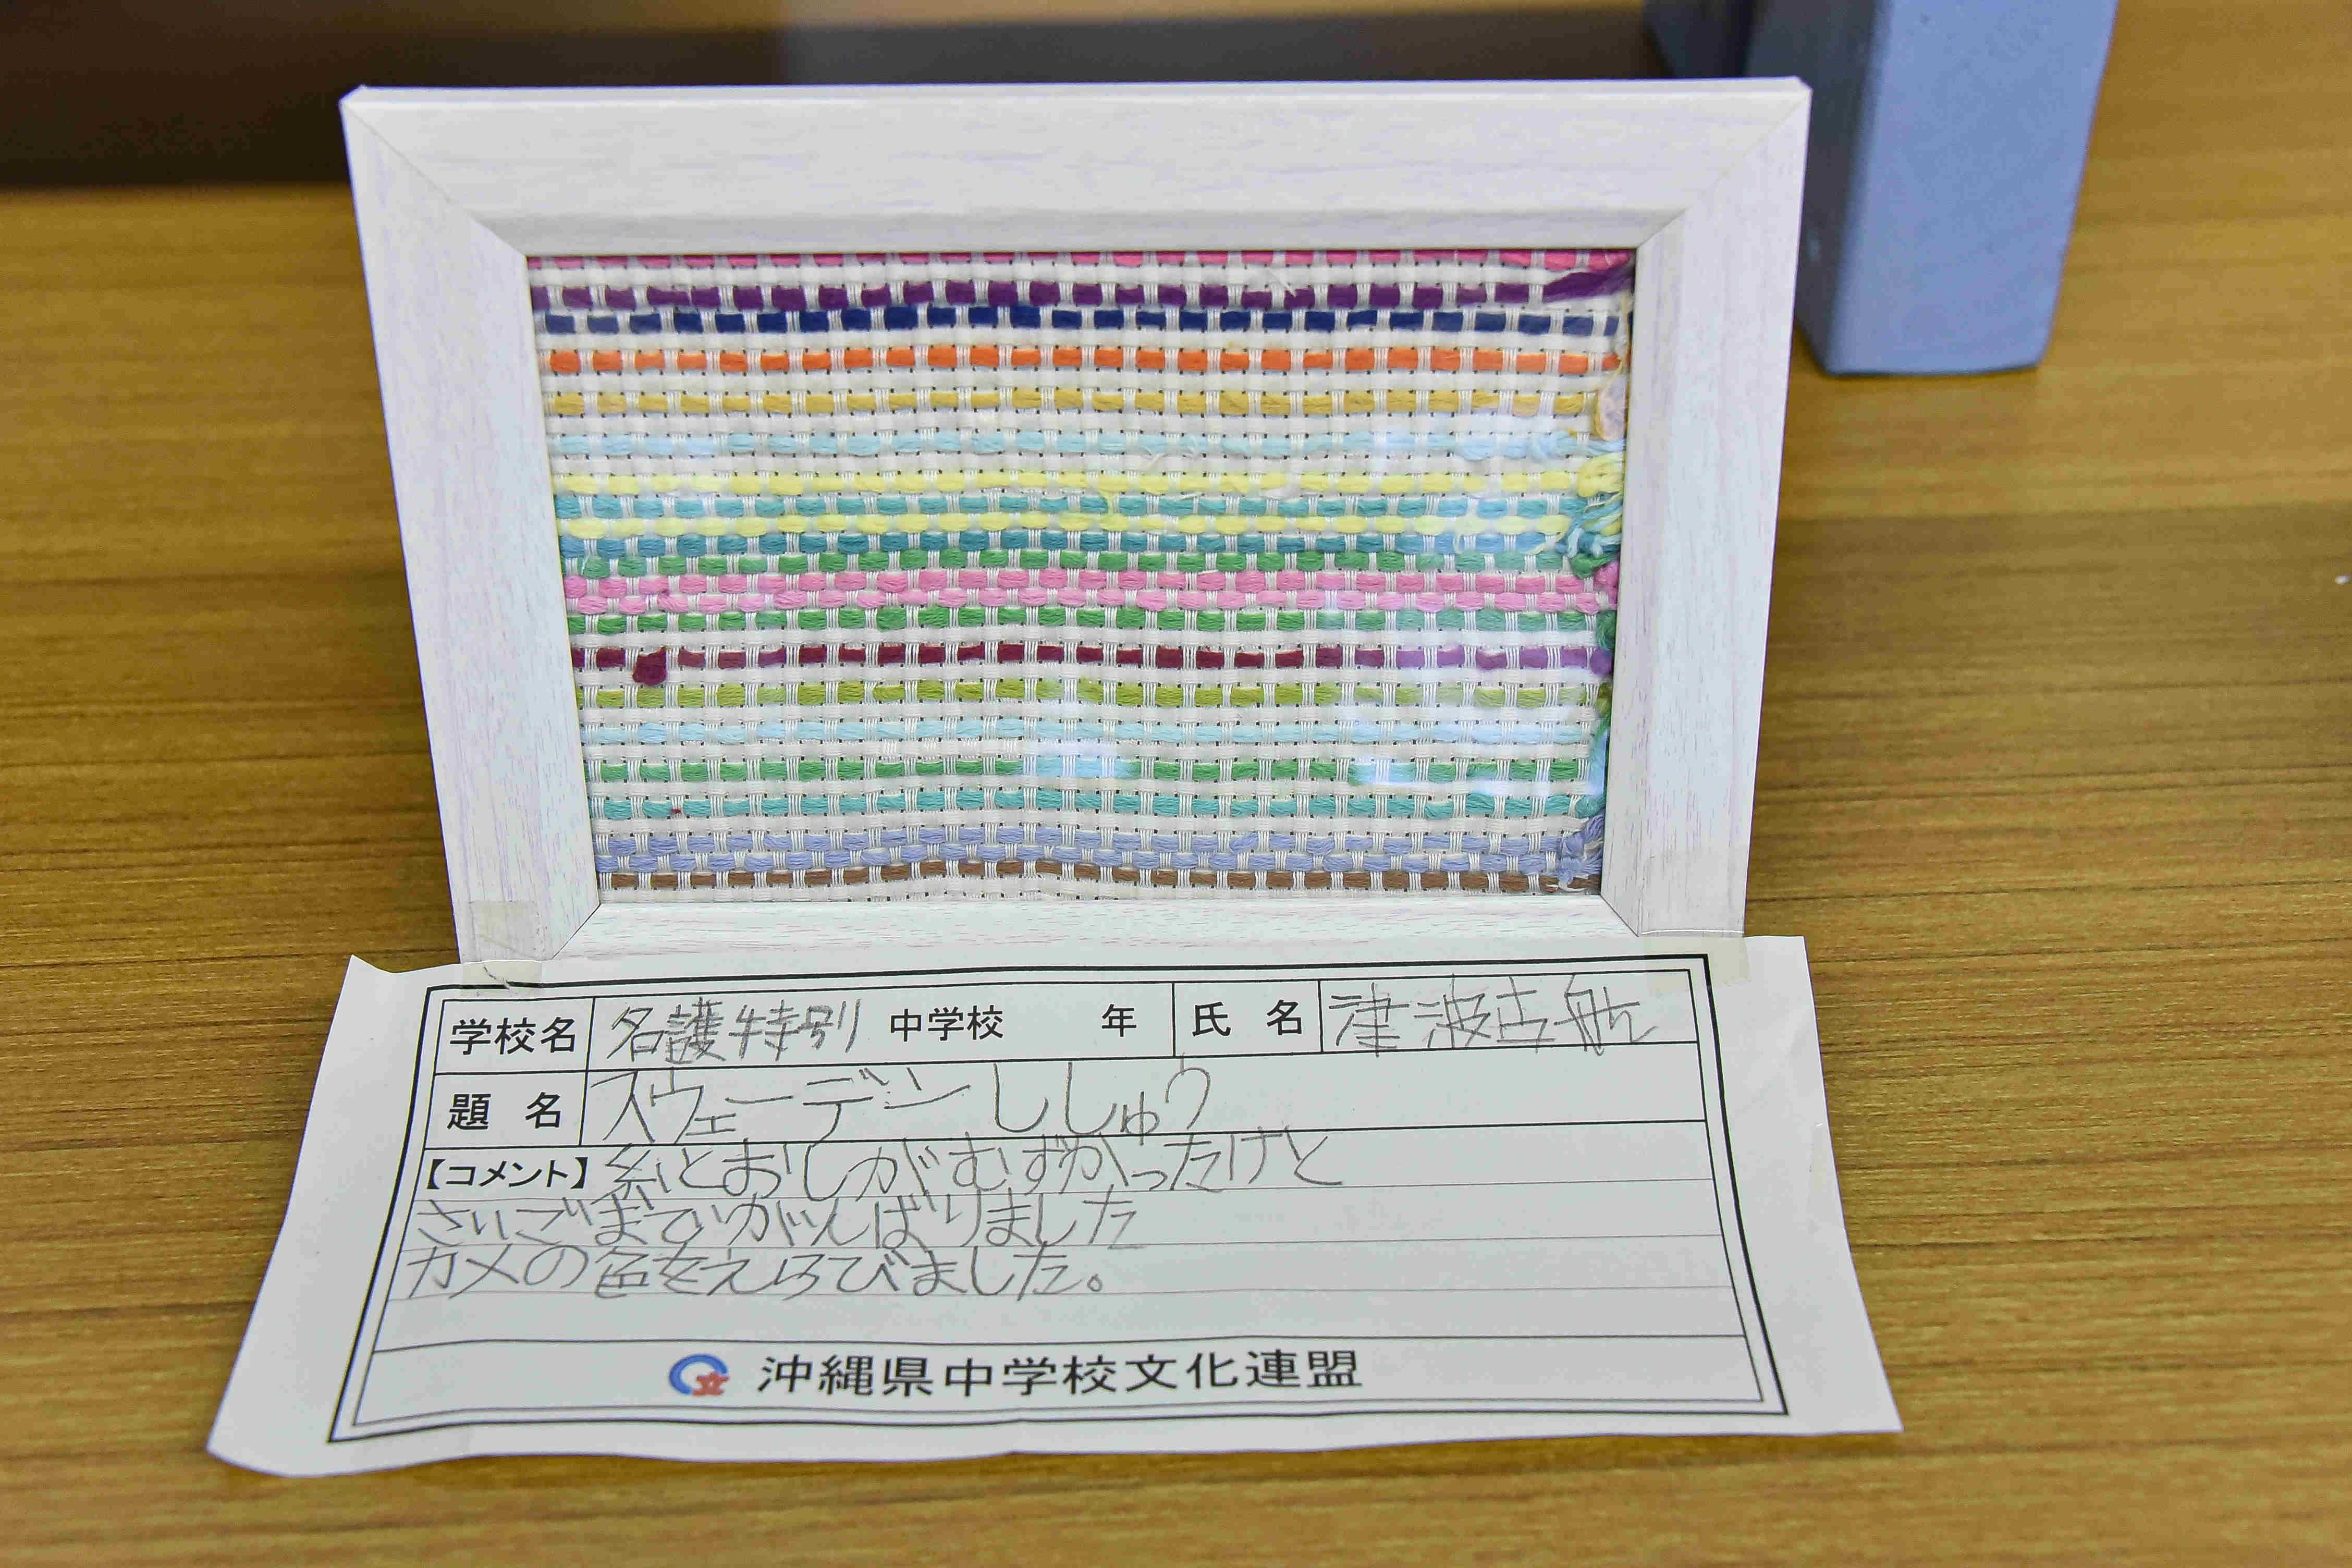 学校名 名護特別 中学校 年 氏名 津波古航
題名 スウェーデンししゅう
【コメント】糸とおしがむずかったけと
さいごまでがんばりました
カメの色をえらびました。
沖縄県中学校文化連盟